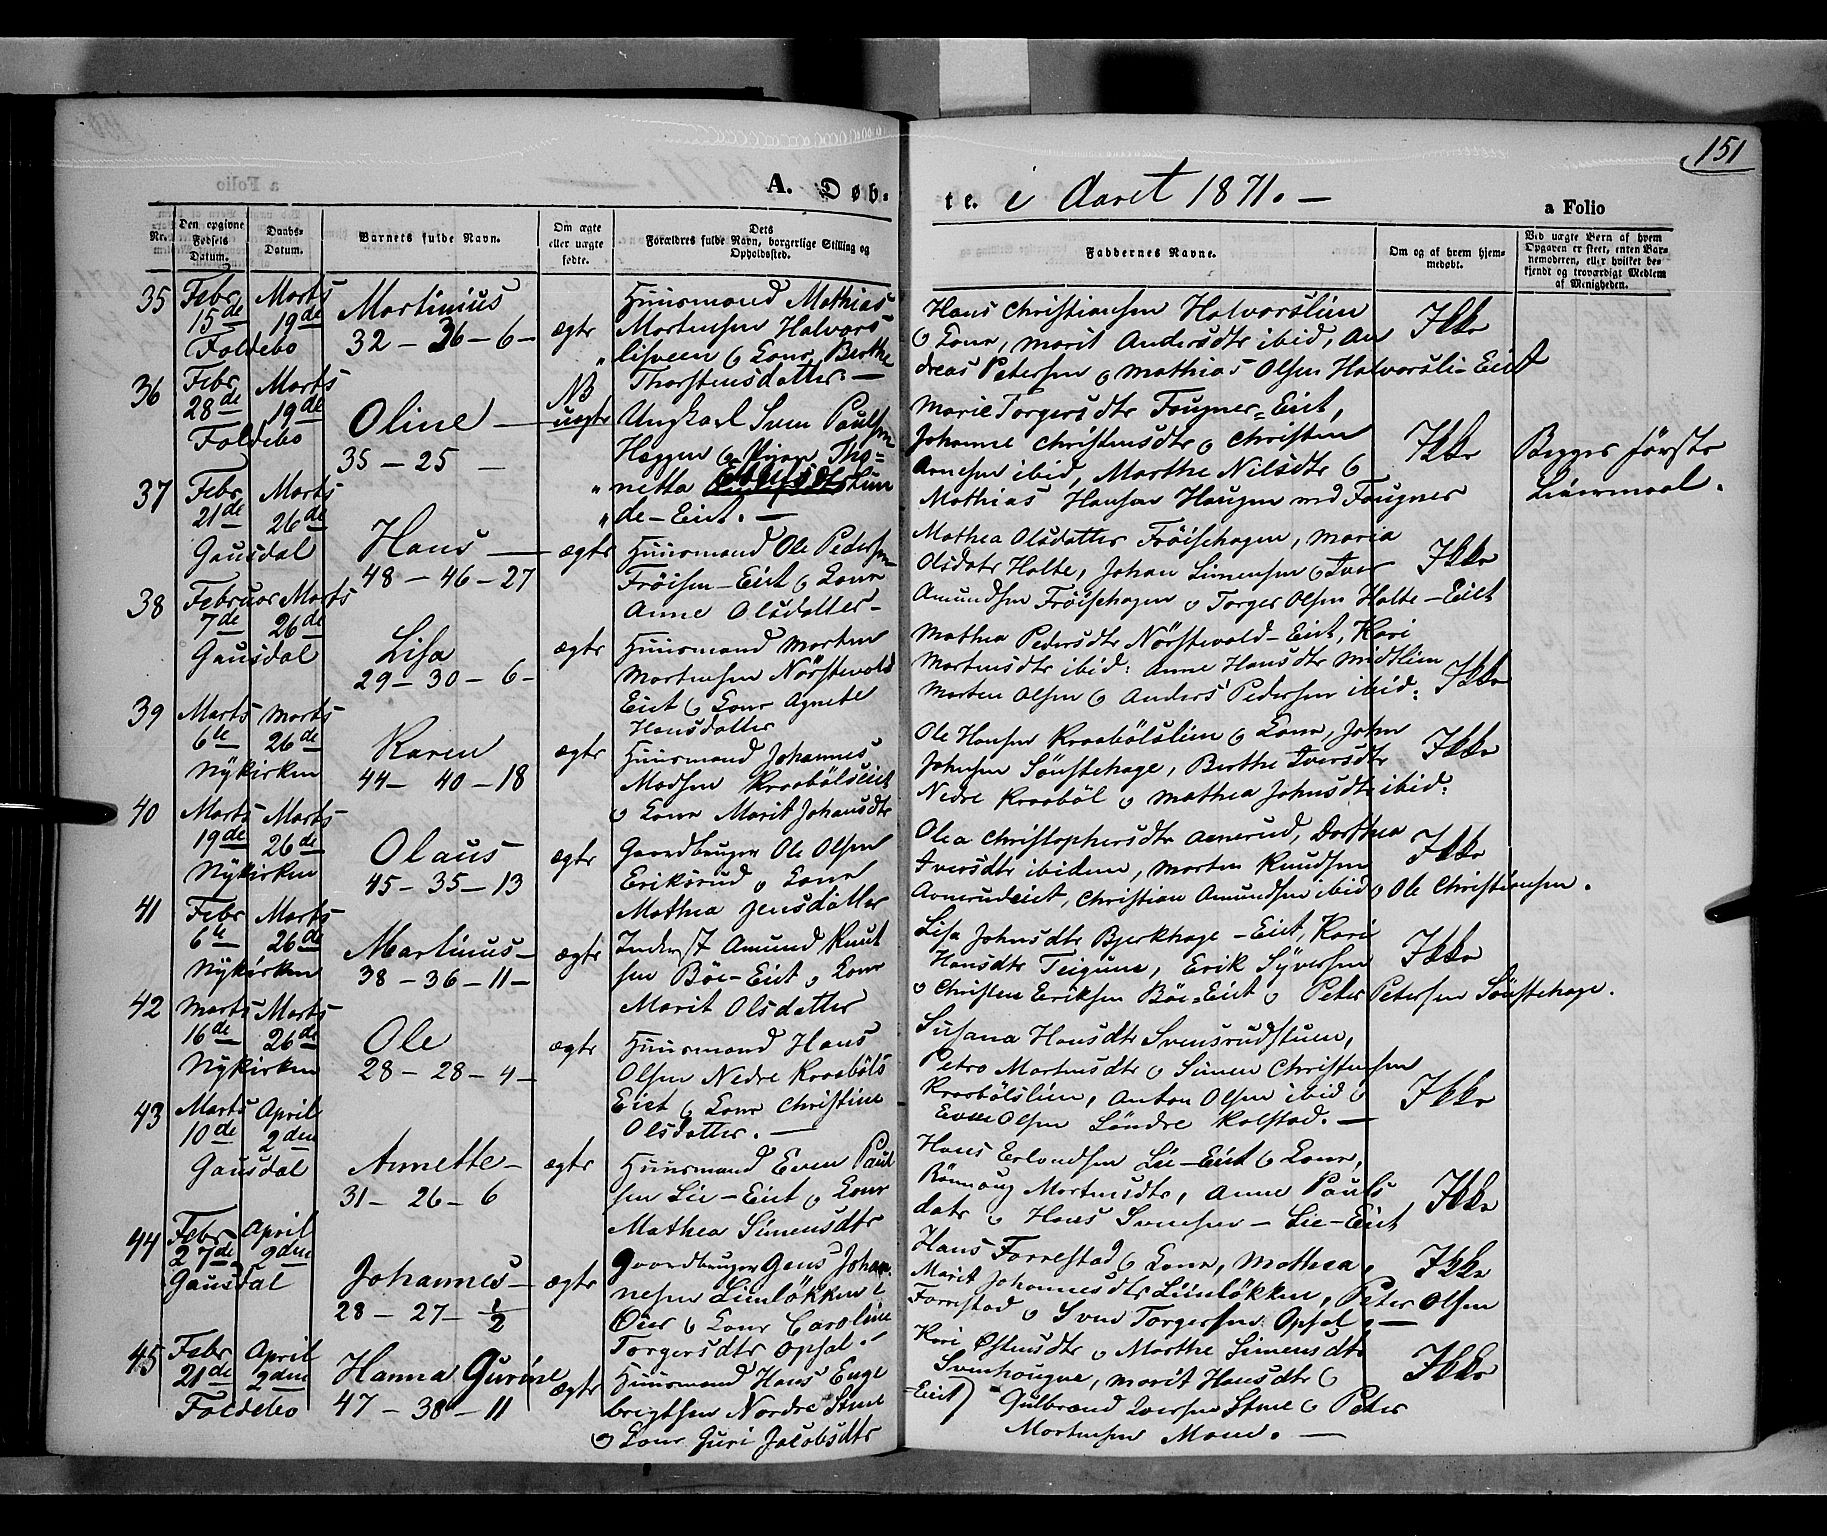 151
A. Døb-
te. i Aaret 1871. —
a Folio
Nr.
Den opgivne Fødsels Datum.
Daabs-Datum.
Barnets fulde Navn.
Om ægte eller uægte fødte.
Dets Forældres fulde Navn, borgerlige Stilling og Opholdssted.
Faddernes Navne.
Om og af hvem hjemmedøbt.
Ved uægte Børn af hvem Opgaven er skeet, enten Barnemoderen, eller hvilket bekjendt og troværdigt Medlem af Menigheden.
35 Febr 15de Marts 19de
Foldebo
Martinius
32 – 36 – 6 –
ægte
Huusmand Mathias
Mortensen Halvors-
lisveen & Kone Berthe
Thorstensdatter. —
Hans Christiansen Halvorslien
& Kone, Marit Andersdtr ibid, An
dreas Petersen & Mathias Olsen Halvorsli-Eiet
Ikke
36 Febr 28de Marts 19de
Foldebo
Oline —
35 – 25 –
NB
uægte
Ungkarl Sven Paulsen
Haggen & Pigen Tho-
netta
de-Eiet. —
Marie Torgersdtr Fougner-Eiet,
Johanne Christensdtr & Christen
Arnesen ibid, Marthe Nilsdtr &
Mathias Hansen Haugen ved Fougner
Ikke
Begges første
Leiermaal.
37 Febr 21de Marts 26de
Gausdal
Hans —
48 – 46 – 27
ægte
Huusmand Ole Pedersen
Fröisen-Eiet & Kone
Anne Olsdatter –
Mathea Olsdatter Fröisehagen, Maria
Olsdatr Holte, Johan Simensen & Iver
Amundsen Fröisehagen & Torger Olsen Holte-Eiet
Ikke
38 Februar 7de Marts 26de
Gausdal
Lisa
29 – 30 – 6 –
ægte
Huusmand Morten
Mortensen Nörstevold
Eiet & Kone Agnete
Hansdatter
Mathea Pedersdtr Nörstevold-Eiet, Kari
Mortensdtr ibid: Anne Hansdtr Midtlien
Morten Olsen & Anders Pedersen ibid:
Ikke
39 Marts 6te Marts 26de
Nykirken
Karen
44 – 40 – 18
ægte
Huusmand Johannes
Madsen Kraabölseiet
& Kone Marit Johansdtr
Ole Hansen Kraabölslien & Kone, John
Johnsen Sönstehage, Berthe Iversdtr
Nedre Kraaböl & Mathea Johnsdtr ibid:
Ikke
40 Marts 19de Marts 26de
Nykirken
Olaus
45 – 35 – 13
ægte
Gaardbruger Ole Olsen
Eriksrud & Kone
Mathea Jensdatter
Olea Christophersdtr Avnerud, Dorthea
Iversdtr ibidem, Morten Knudsen
Avnerudeiet, Christian Amundsen ibid & Ole Christiansen.
Ikke
41 Febr 6te Marts 26de
Nykirken
Martinus –
38 – 36 – 11 –
ægte
Inderst Amund Knut
sen Böe-Eiet & Kone
Marit Olsdatter
Lisa Johnsdtr Bjerkhage-Eiet, Kari
Hansdtr Teigune, Erik Syversen
& Christen Eriksen Böe-Eiet & Peter Petersen Sönstehage.
Ikke
42 Marts 16de Marts 26de
Nykirken
Ole
28 – 28 – 4 –
ægte
Huusmand Hans
Olsen Nedre Kraaböls
Eiet & Kone Christine
Olsdatter. —
Susana Hansdtr Svensrudstuen,
Petra Martinsdtr & Simen Christensen
Kraabölslien, Anton Olsen ibid &
Even Olsen Söndre Kolstad. —
Ikke
43 Marts 10de April 2den
Gausdal
Annette –
31 – 26 – 6
ægte
Huusmand Even Paul
sen Lie-Eiet & Kone
Mathea Simensdtr
Hans Erlandsen Lie-Eiet & Kone,
Rönnaug Mortensdtr, Anne Pauls
datr & Hans Svensen – Lie-Eiet
Ikke
44 Febr 27de April 2den
Gausdal
Johannes –
28 – 27 – 1/2
ægte
Gaardbruger Jens Johan-
nesen Liinlökken i
Öier & Kone Caroline
Torgersdtr Opsal.
Hans Forrestad & Kone, Mathea,
Marit Johannesdtr Liinlökken, Peter Olsen
Forrestad & Sven Torgersen Opsal. —
Ikke
45 Febr 21de April 2den
Foldebo
Hanna Gurine
47 – 38 – 11
ægte
Huusmand Hans Enge
brigtsen Nordre Stene
& Kone Guri Jacobsdtr
Kari Östensdtr & Marthe Simensdtr
Svenhougne, Marit Hansdtr (
-Eiet) Gulbrand Iversen Stene & Peter
Mortensen Moen. —
Ikke